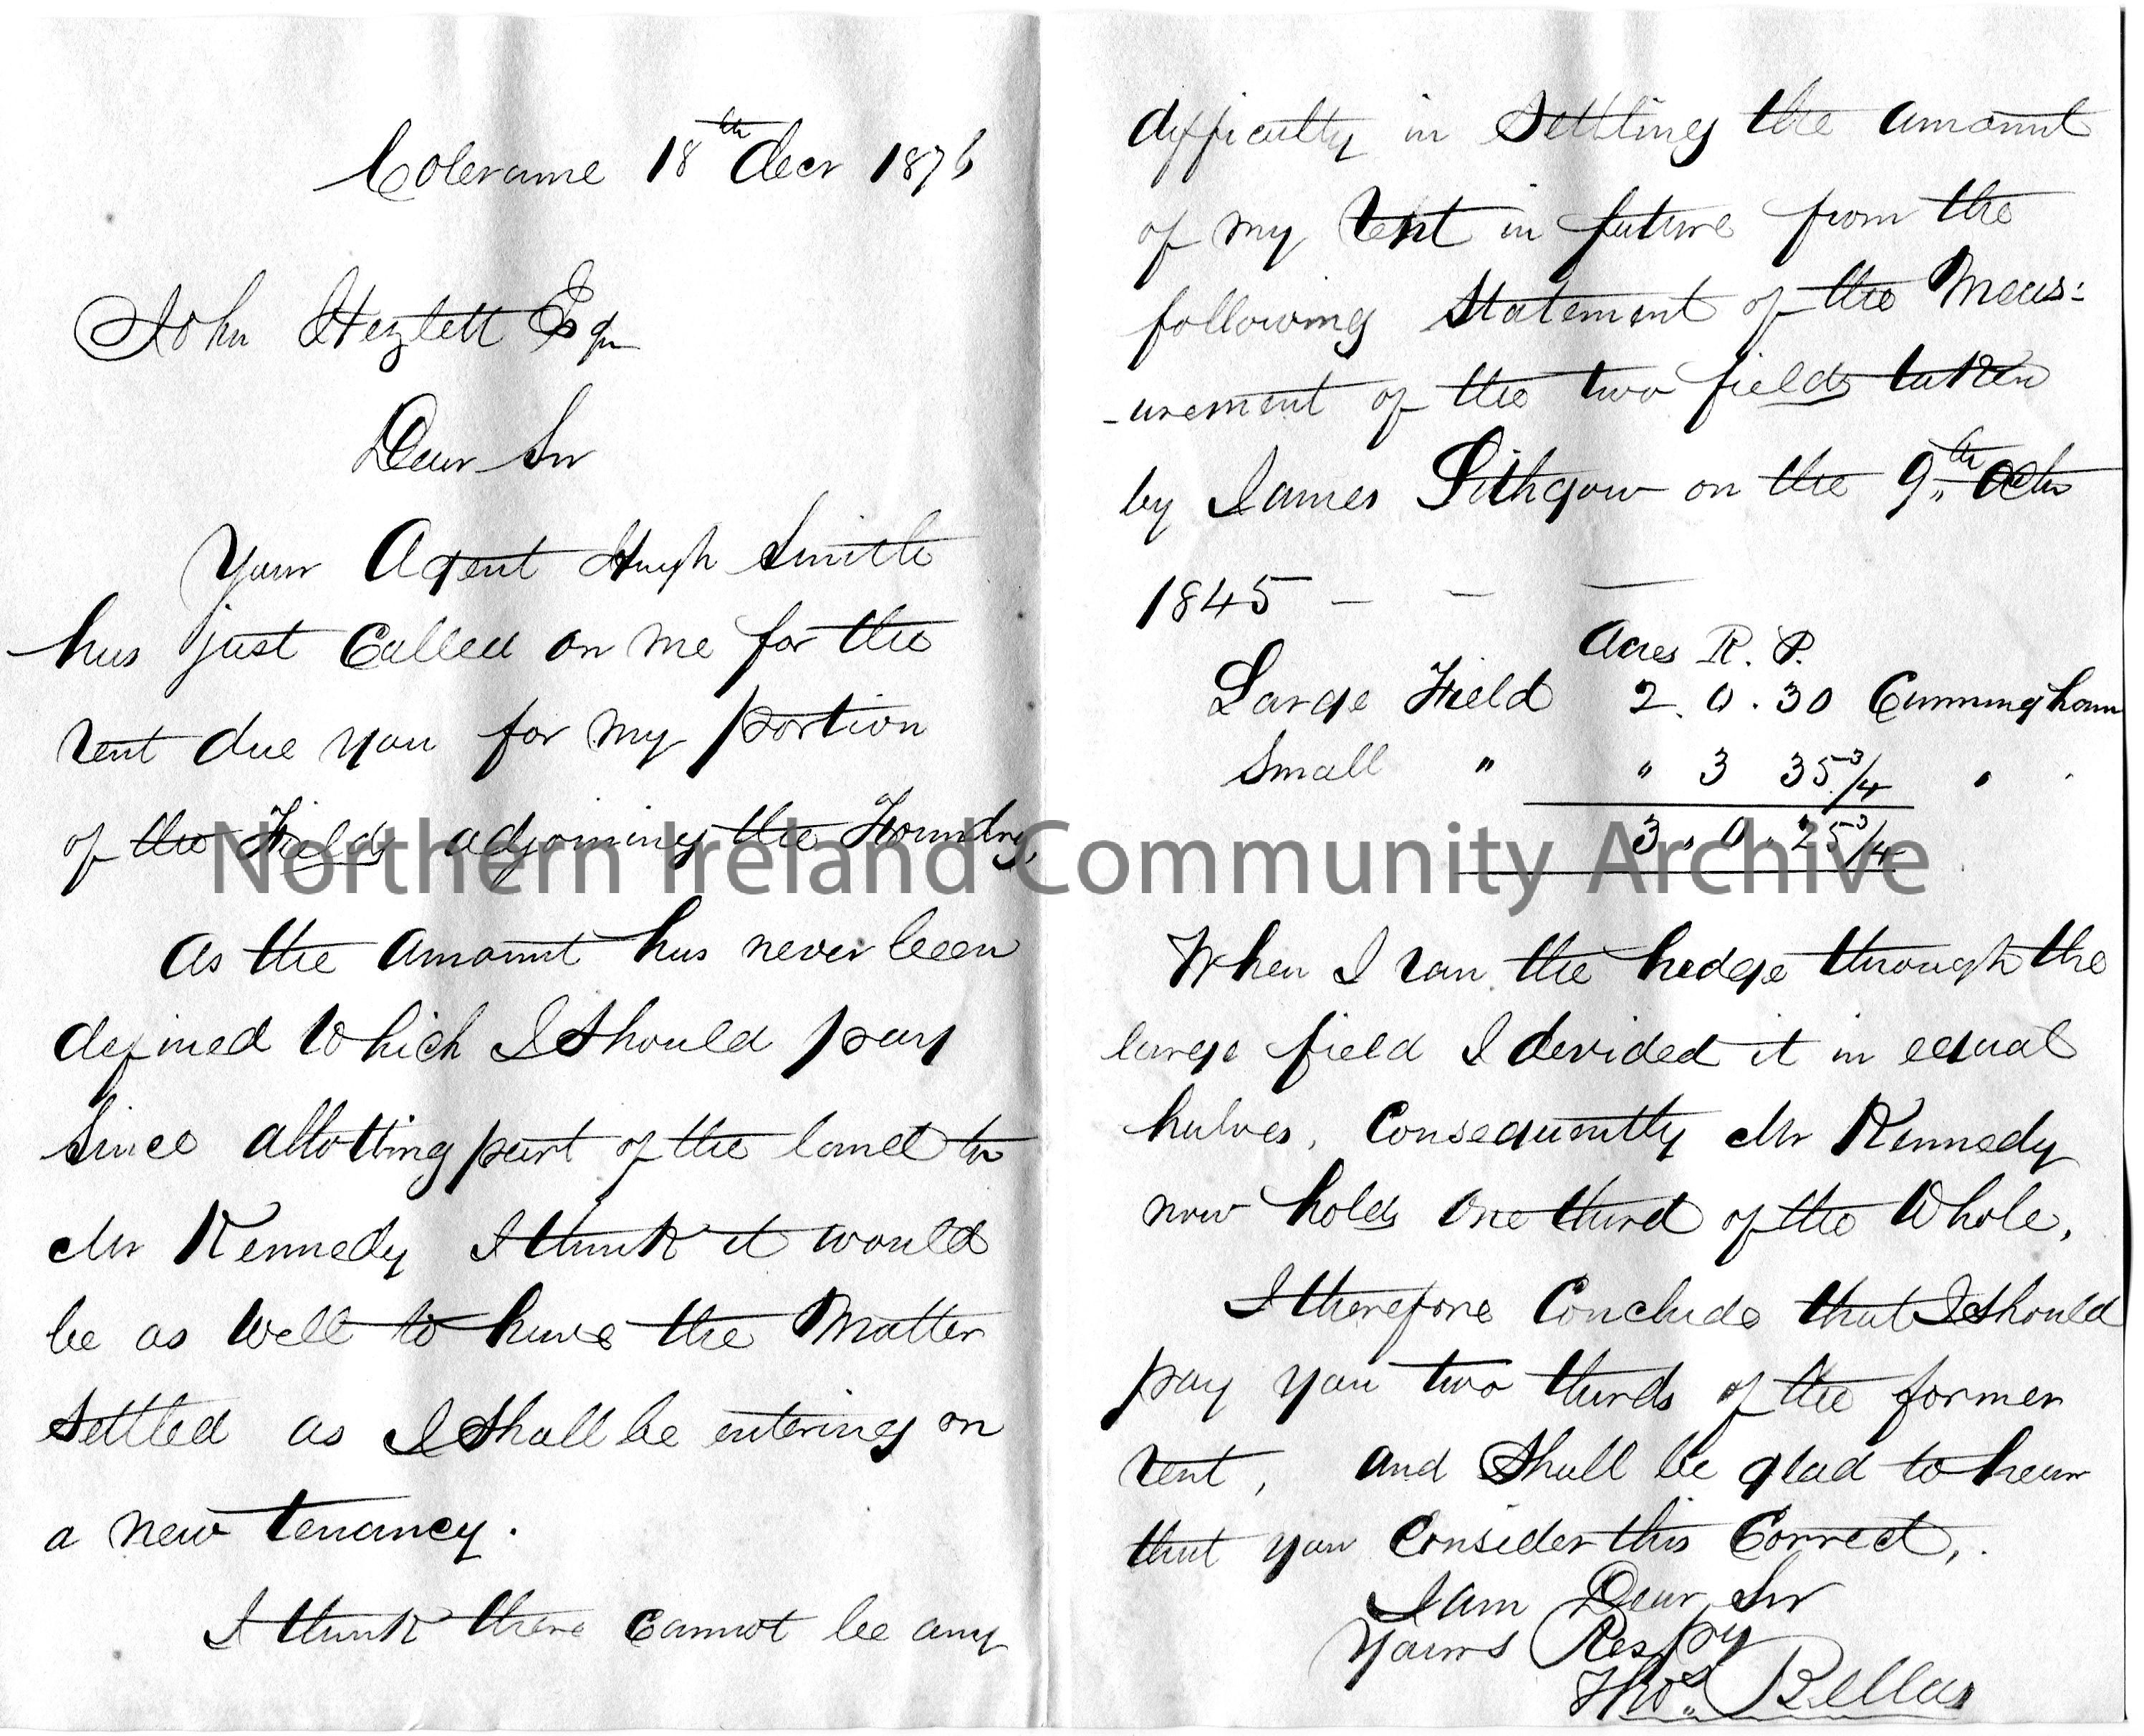 Coleraine 18th Decr 1876
John Hezlett Esqr
Dear Sir
Your Agent Hugh Smith
has just Called on me for the
rent due you for my portion
of the Fields adjoining the Foundry,
As the Amount has never been
defined Which I Should pay
Since allotting part of the land to
Mr Kennedy I think it would
be as Well to have the Matter
Settled as I Shall be entering on
a new tenancy.
I think there Cannot be any
difficulty in Settling the amount
of my Rent in future from the
following Statement of the Meas:
-urement of the two fields taken
by James Lithgow on the 9th Octr
1845 - - -
Acres R. P.
Large Field 2. 0. 30 Cunningham
Small " " 3 35 3/4 "
3. 0. 25 3/4
When I ran the hedge through the
large field I devided it in equal
halves, Consequently Mr Kennedy
now holds One third of the Whole,
I therefore Conclude that I Should
pay you two thirds of the former
rent, and Shall be glad to hear
that you Consider this Correct,.
I am Dear Sir
Yours Respy
Thos. Bellas
Northern Ireland Community Archive